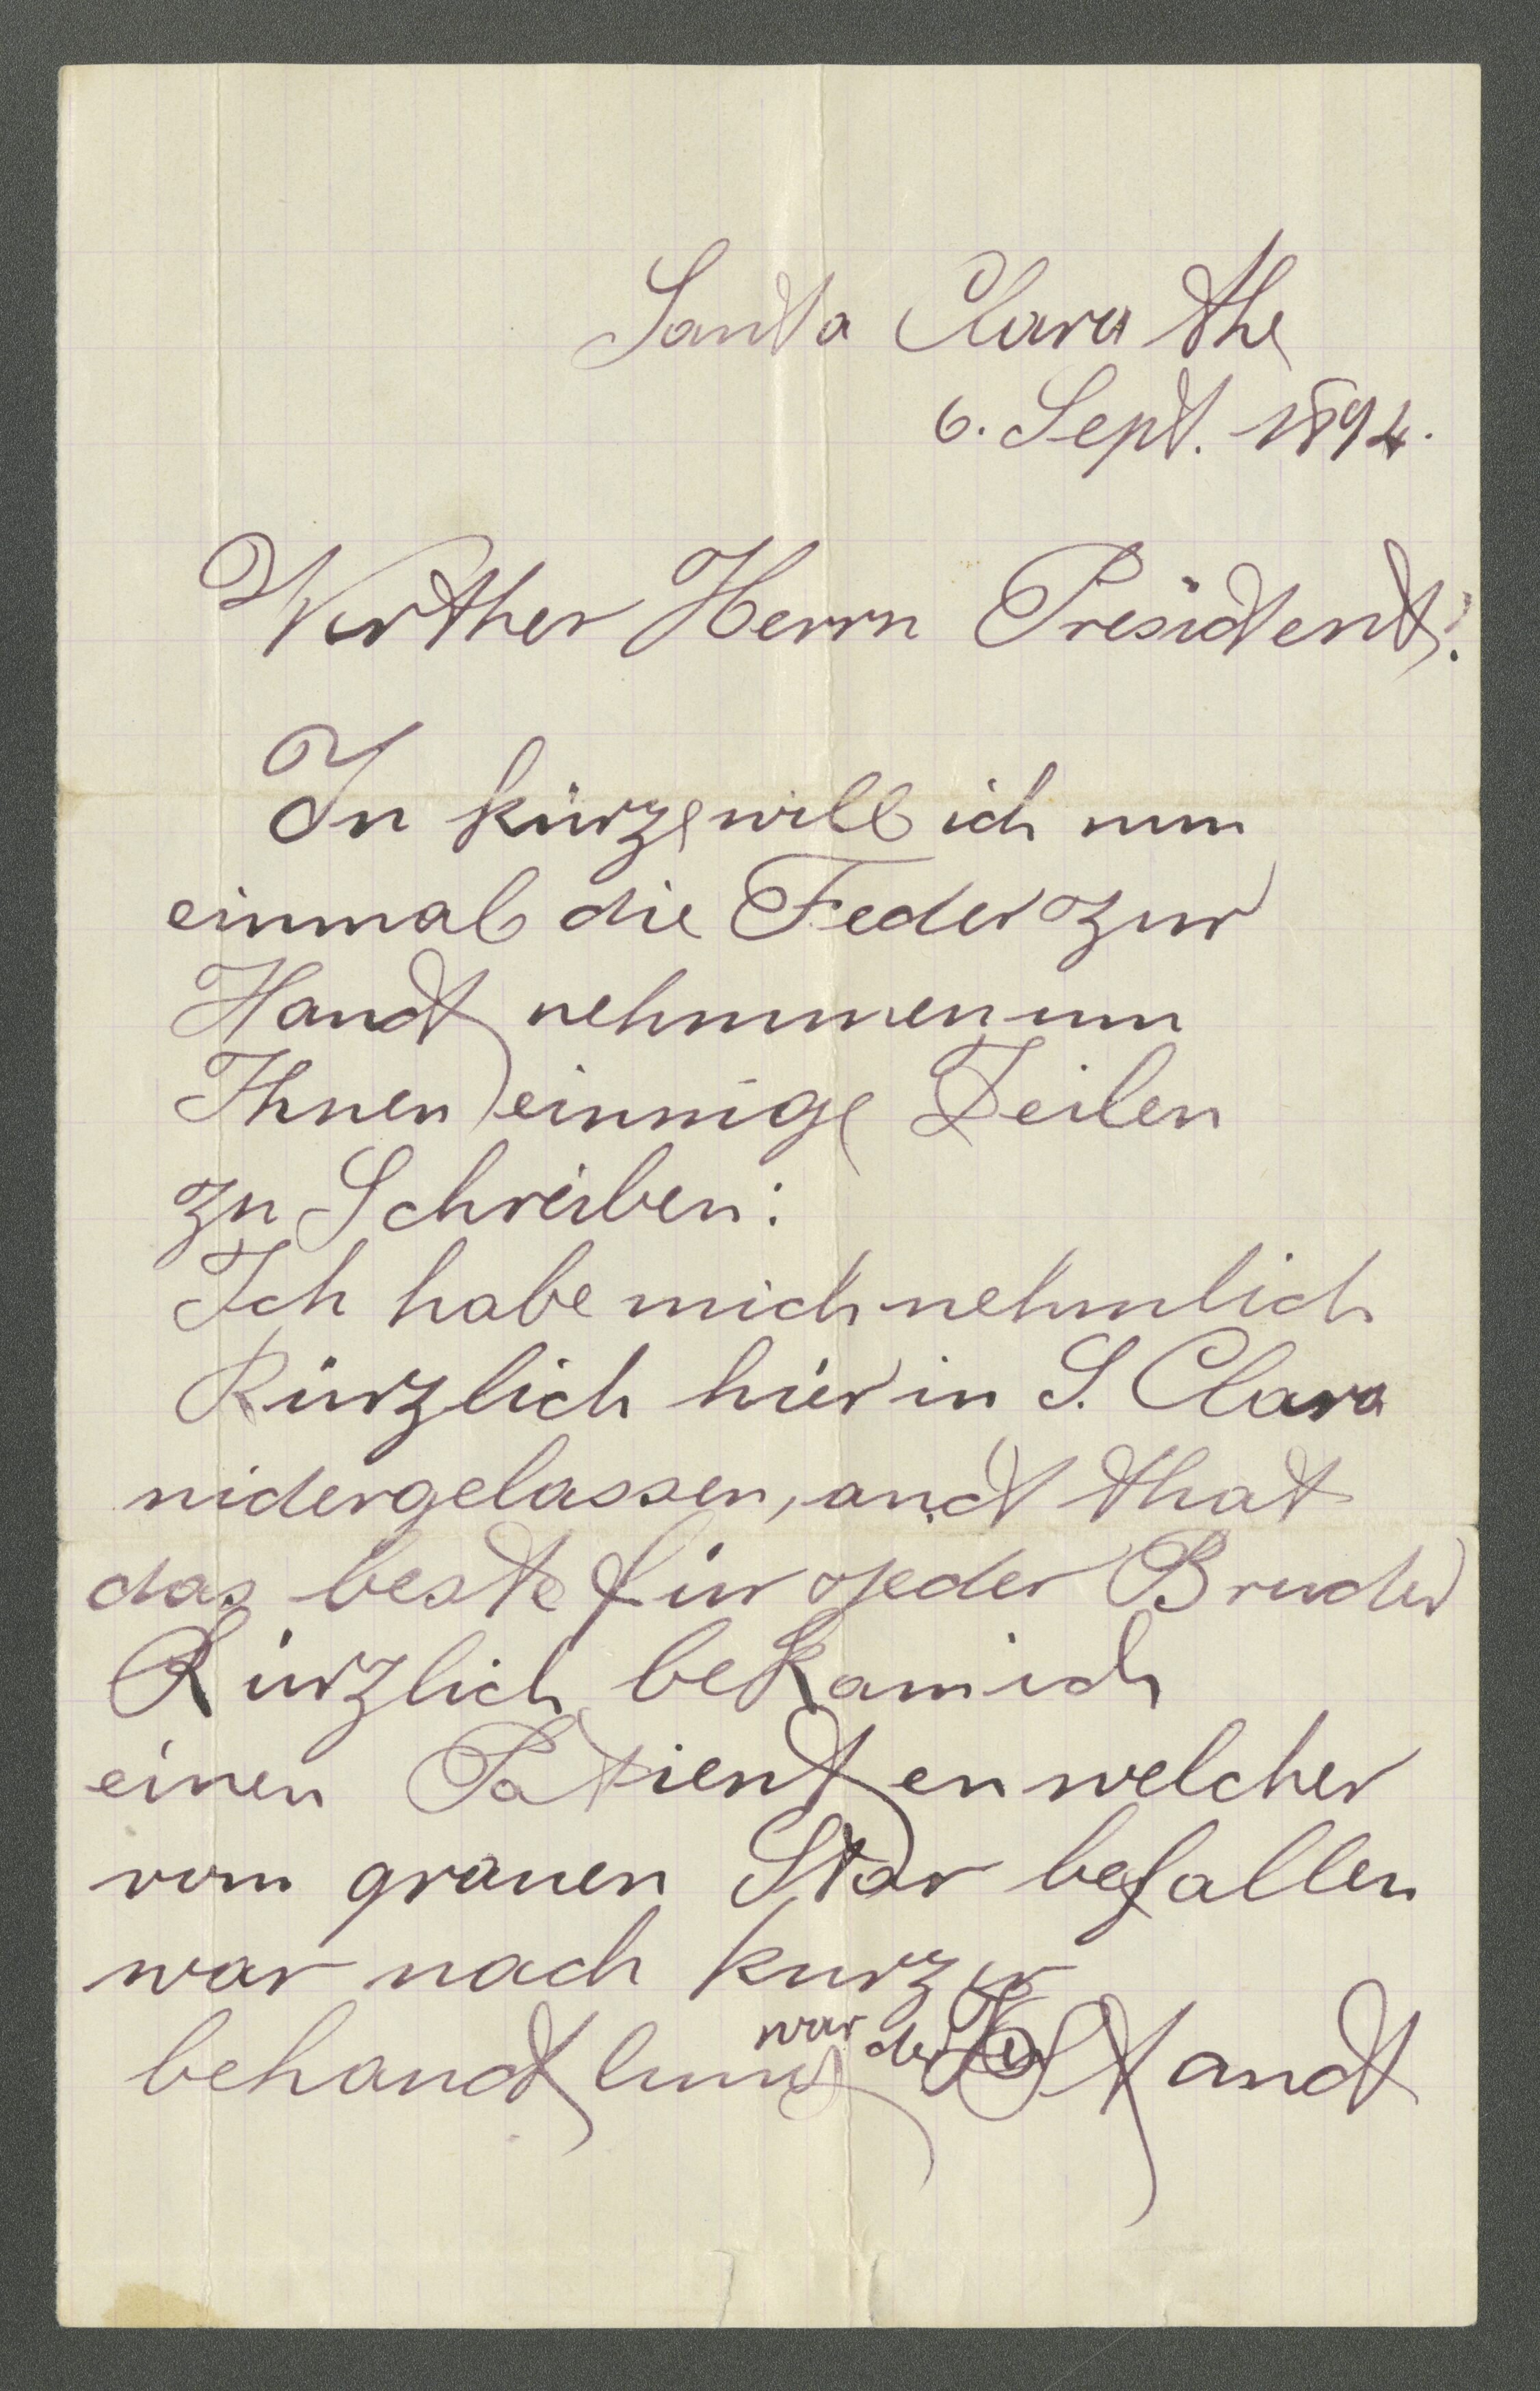 Santa Clara the
6. Sept. 1894.
Werther Herrn Président!
In kürze will ich nun
einmal die Feder zur
Handt nehmmen um
Ihnen einnige Zeilen
zu Schreiben:
Ich habe mich nehmlich
Kürzlich hier in S. Clara
nidergelassen, and that
das beste für jeder Bruder
Kürzlich bekam ich
einen Patienten welcher
vom grauen Star befallen
war nach kurzer
behandtlung war der Standt